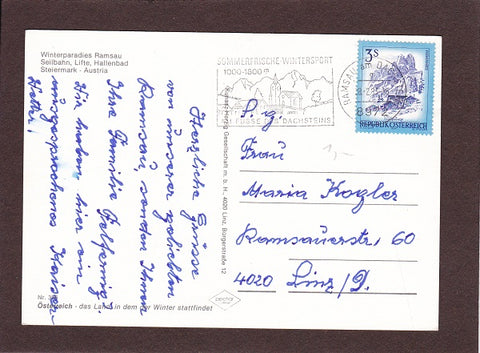 Winterparadies Ramsau
Seilbahn, Lifte, Hallenbad
Steiermark - Austria
Herzliche Grüsse
von unserer geliebten
Ramsau, senden Ihnen
Ihre Familie
Wir haben hier ein
Kaiser-
Wetter!
Nr.
Österreich - das Land in dem der Winter stattfindet
Gesellschaft m. b. H. 4020 Linz, Bürgerstraße 12
SOMMERFRISCHE-WINTERSPORT
1000-1800
FUSSE DES DACHSTEINS
RAMSAU am
8972
3S
REPUBLIK ÖSTERREICH
S. g.
Frau
Maria Kogler
Ramsauerstr. 60
4020 Linz/D.
1,-